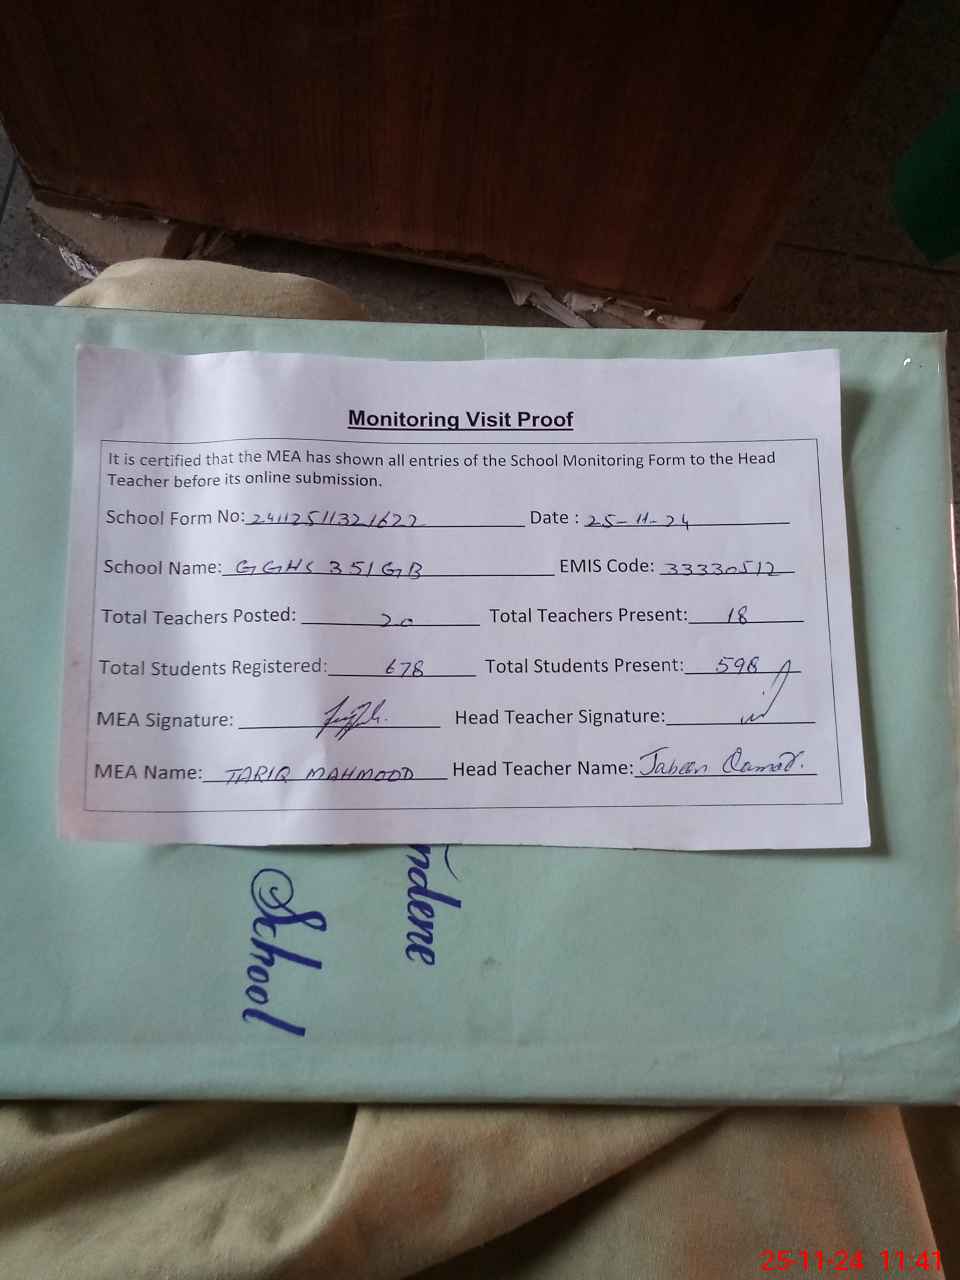 Monitoring Visit Proof
It is certified that the MEA has shown all entries of the School Monitoring Form to the Head
Teacher before its online submission.
School Form No: 24112511321622 Date : 25-11-24
School Name: GGHS 351 GB EMIS Code: 33330512
Total Teachers Posted: 20 Total Teachers Present: 18
Total Students Registered: 678 Total Students Present: 598
MEA Signature: Head Teacher Signature:
MEA Name: TARIQ MAHMOOD Head Teacher Name: Jabeen Qamar.
ndene
School
25-11-24 11:41